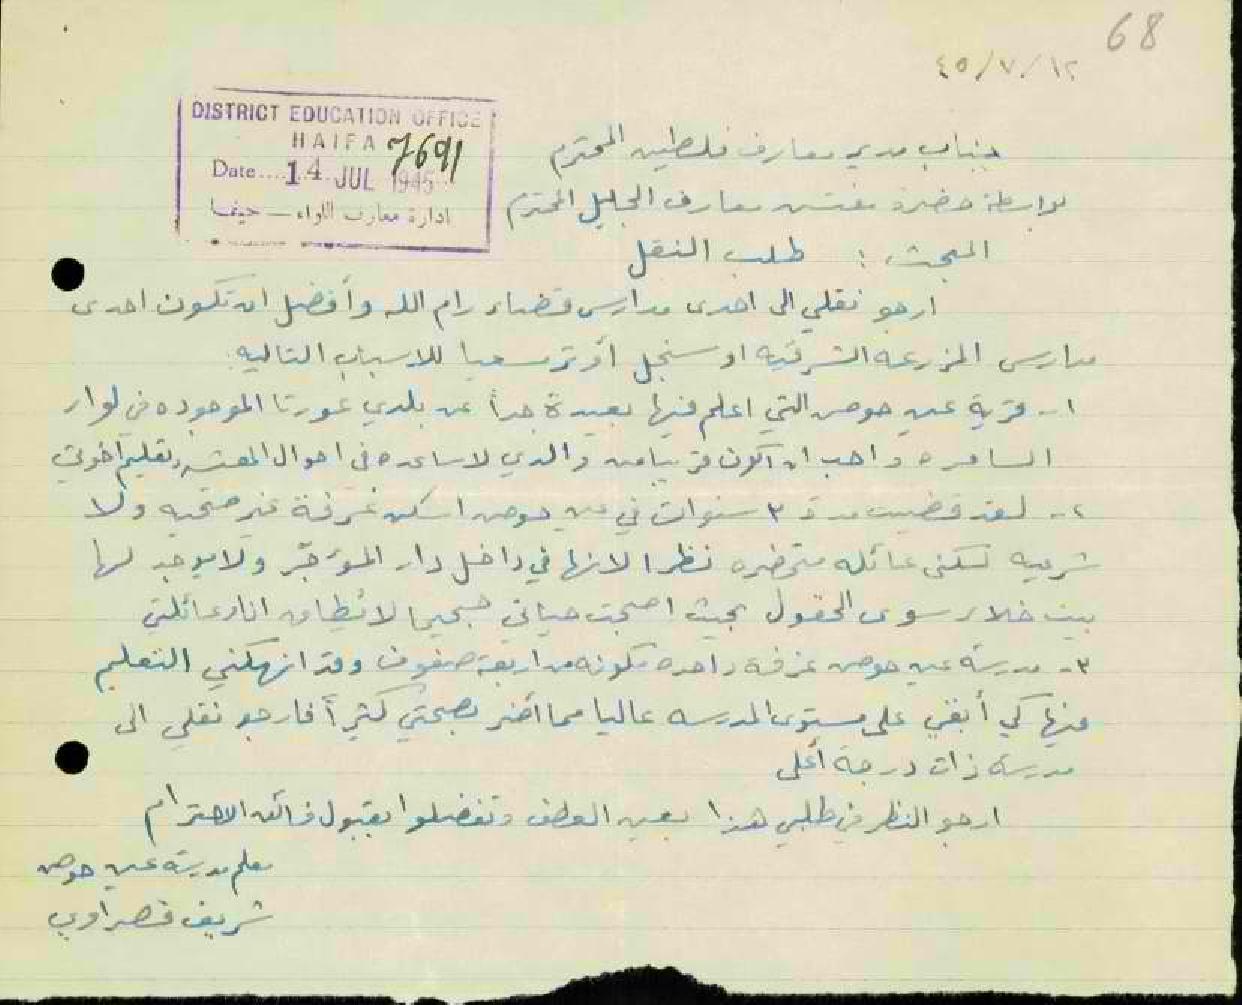 68
٤٥/٧/١٢
DISTRICT EDUCATION OFFICE
HAIFA
7691
Date....14 JUL 1945
ادارة معارف اللواء — حيفا
جناب مدير معارف فلسطين المحترم
بواسطة حضرة مفتش معارف الجليل المحترم
المبحث : طلب النقل
ارجو نقلي الى احدى مدارس قضاء رام الله وأفضل ان تكون احدى
مدارس المزرعه الشرقيه او سنجل أو ترمسعيا للاسباب التاليه
١- قرية عين حوض التي اعلم فيها بعيدة جداً عن بلدي عورتا الموجوده في لواء
السامره واحب ان اكون قريبا من والدي لاساعده في احوال المعيشه وتعليم اخوتي
٢- لقد قضيت مدة ٣ سنوات في عين حوض اسكن غرفة غير صحيه ولا
شرعيه لسكنى عائله متحضره نظرا لانها في داخل دار المؤجّر ولا يوجد لها
بيت خلاء سوى الحقول بحيث اصبحت حياتي جحيما لا يطاق انا وعائلتي
٣- مدرسة عين حوض غرفة واحده مكونه من اربعة صفوف وقد انهكني التعليم
فيها كي أبقي على مستوى المدرسه عاليا مما أضر بصحتي كثيراً فارجو نقلي الى
مدرسة ذات درجة أعلى
ارجو النظر في طلبي هذا بعين العطف وتفضلوا بقبول فائق الاحترام
معلم مدرسة عين حوض
شريف قصراوي